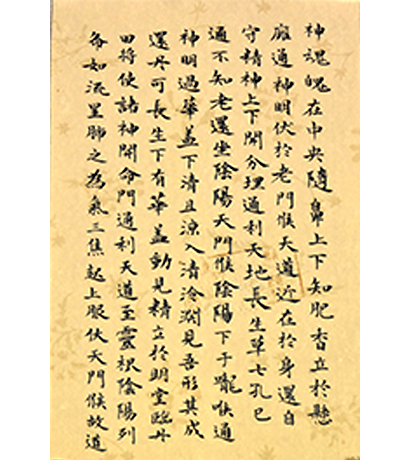 神魂魄在中央隨鼻上下知肥香立於懸
廱通神明伏於老門候天道近在於身還自
守精神上下開分理通利天地長生草七孔已
通不知老還坐陰陽天門候陰陽下于嚨喉通
神明過華蓋下清且涼入清泠淵見吾形其成
還丹可長生下有華蓋動見精立於明堂臨丹
田將使諸神開命門通利天道至靈根陰陽列
布如流星肺之為氣三焦起上服伏天門候故道